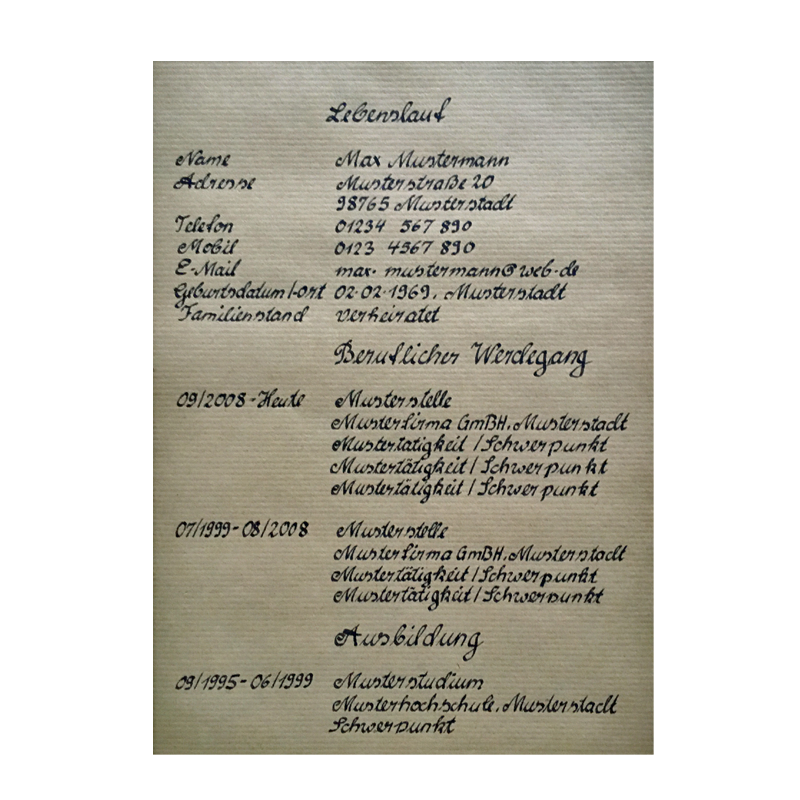 Lebenslauf
Name Max Mustermann
Adresse Musterstraße 20
98765 Musterstadt
Telefon 01234 567 890
Mobil 0123 4567 890
E-Mail max.mustermann@web.de
Geburtsdatum/-ort 02.02.1969, Musterstadt
Familienstand verheiratet
Beruflicher Werdegang
09/2008-Heute Musterstelle
Musterfirma GmBH, Musterstadt
Mustertätigkeit/Schwerpunkt
Mustertätigkeit/Schwerpunkt
Mustertätigkeit/Schwerpunkt
07/1999-08/2008 Musterstelle
Musterfirma GmBH, Musterstadt
Mustertätigkeit/Schwerpunkt
Mustertätigkeit/Schwerpunkt
Ausbildung
09/1995-06/1999 Musterstudium
Musterhochschule, Musterstadt
Schwerpunkt